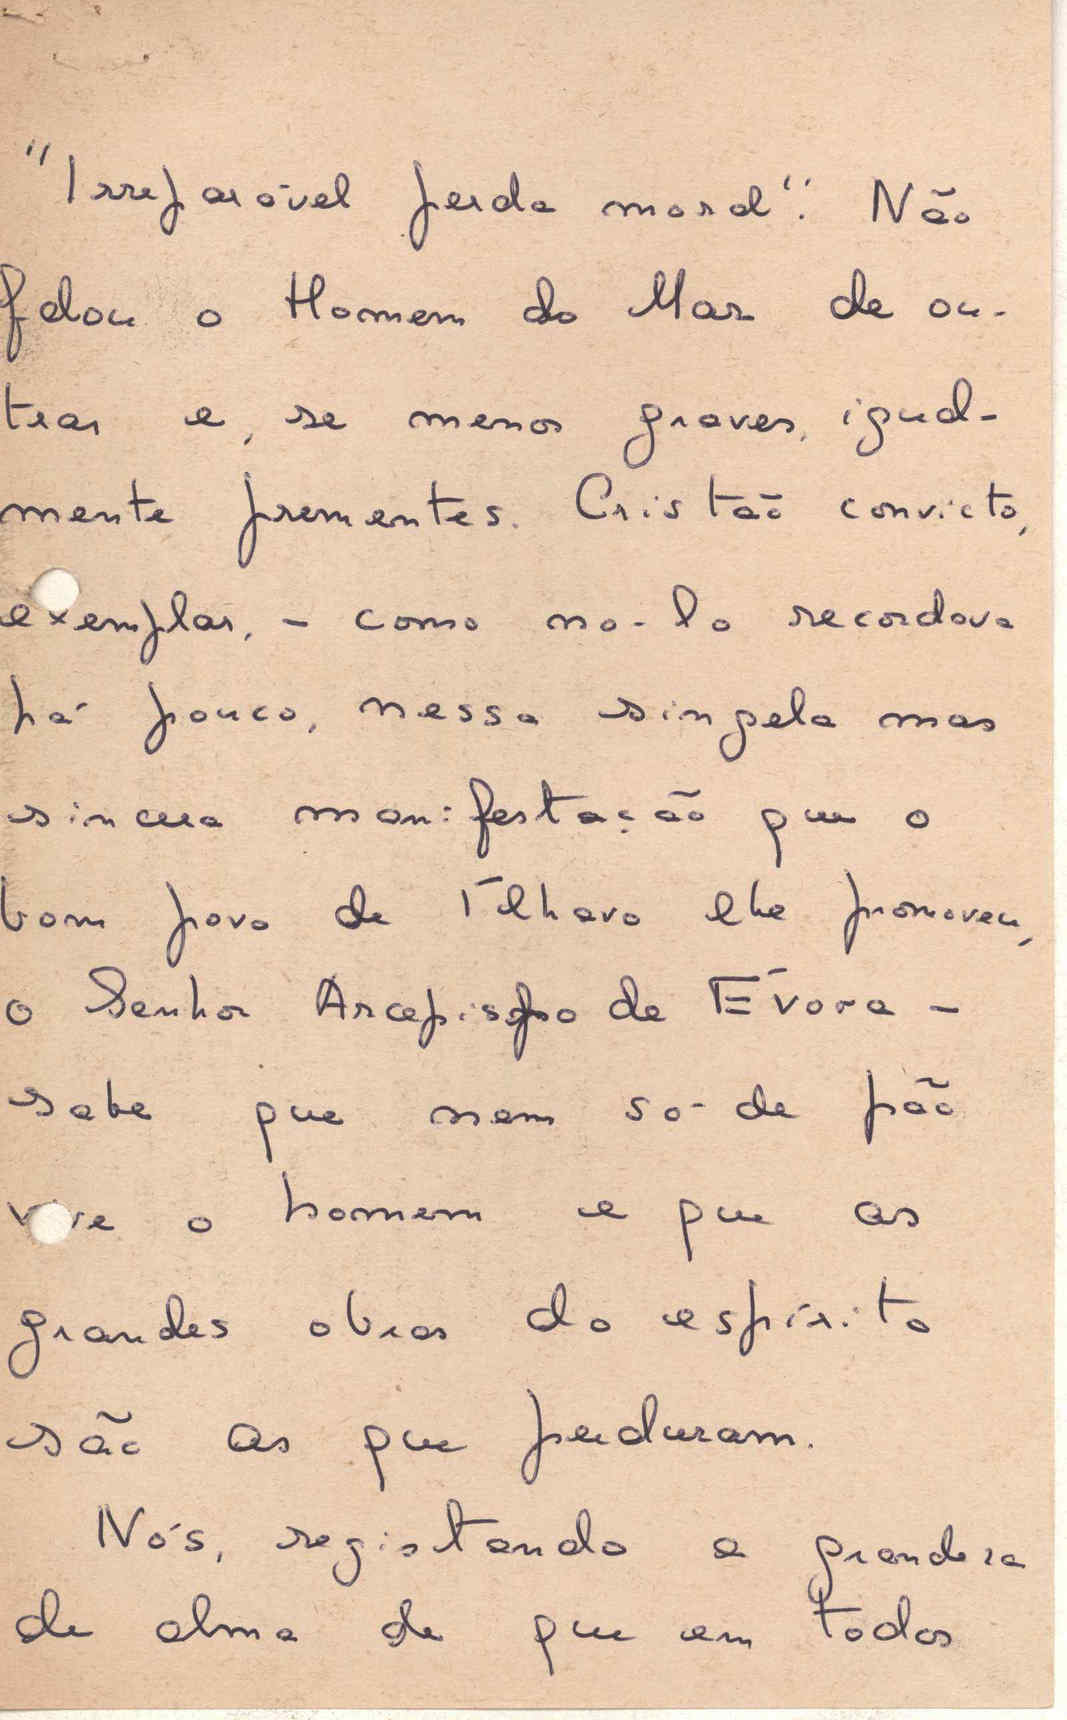 "Irreparável perda moral". Não
falou o Homem do Mar de ou-
tras e, se menos graves, igual-
mente prementes. Cristão convicto,
exemplar, - como no-lo recordava
há pouco, nessa singela mas
sincera manifestação que o
bom povo de Ílhavo lhe promoveu,
o Senhor Arcepispo de Évora -
sabe que nem só de pão
vive o homem e que as
grandes obras do espírito
são as que perduram.
Nós, registando a grandeza
de alma de que em todos